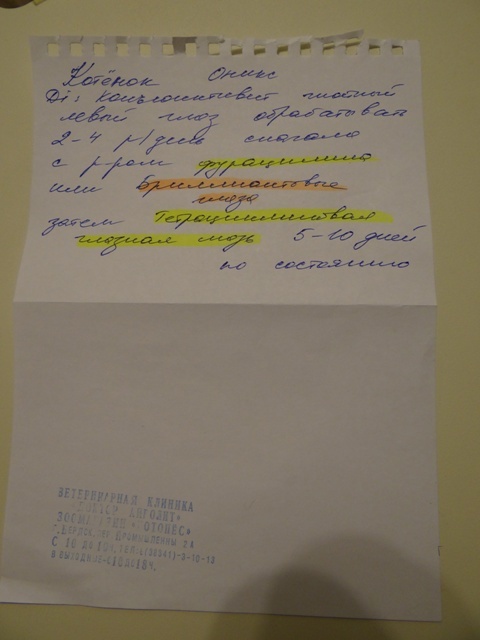 Котёнок Оникс
Ds: Конъюнктивит гнойный
левый глаз обрабатывать
2-4 р/день сначала
с р-ром фурацилина
или Бриллиантовые
глаза
затем Тетрациклиновая
глазная мазь 5-10 дней
по состоянию
ВЕТЕРИНАРНАЯ КЛИНИКА
"ДОКТОР
ЗООМАГАЗИН
Г. БЕРДСК,
С 10 ДО
В ВЫХОДНЫЕ